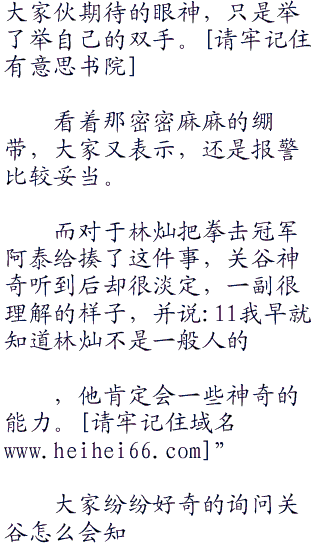 大家伙期待的眼神，只是举
了举自己的双手。[请牢记住
有意思书院]
看着那密密麻麻的绷
带，大家又表示，还是报警
比较妥当。
而对于林灿把拳击冠军
阿泰给揍了这件事，关谷神
奇听到后却很淡定，一副很
理解的样子，并说:11我早就
知道林灿不是一般人的
，他肯定会一些神奇的
能力。[请牢记住域名
www.heihei66.com]”
大家纷纷好奇的询问关
谷怎么会知